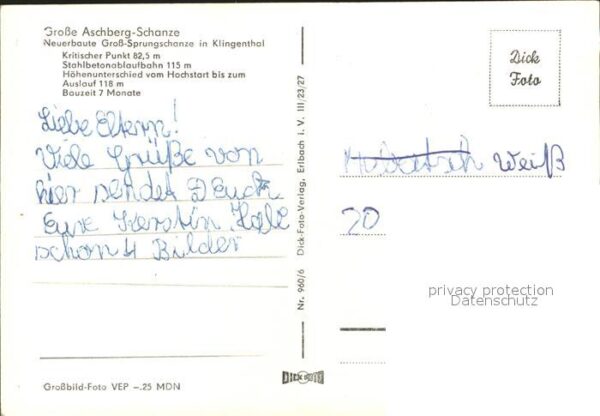 Große Aschberg-Schanze
Neuerbaute Groß-Sprungschanze in Klingenthal
Kritischer Punkt 82,5 m
Stahlbetonablaufbahn 115 m
Höhenunterschied vom Hochstart bis zum
Auslauf 118 m
Bauzeit 7 Monate
Liebe Eltern!
Viele Grüße von
hier sendet Euch
Eure Kerstin. Habe
schon 4 Bilder
Großbild-Foto VEP -.25 MDN
Nr. 960/6 Dick-Foto-Verlag, Erlbach i. V. III/23/27
DICK FOTO
Dick
Foto
Weiß
20
privacy protection
Datenschutz